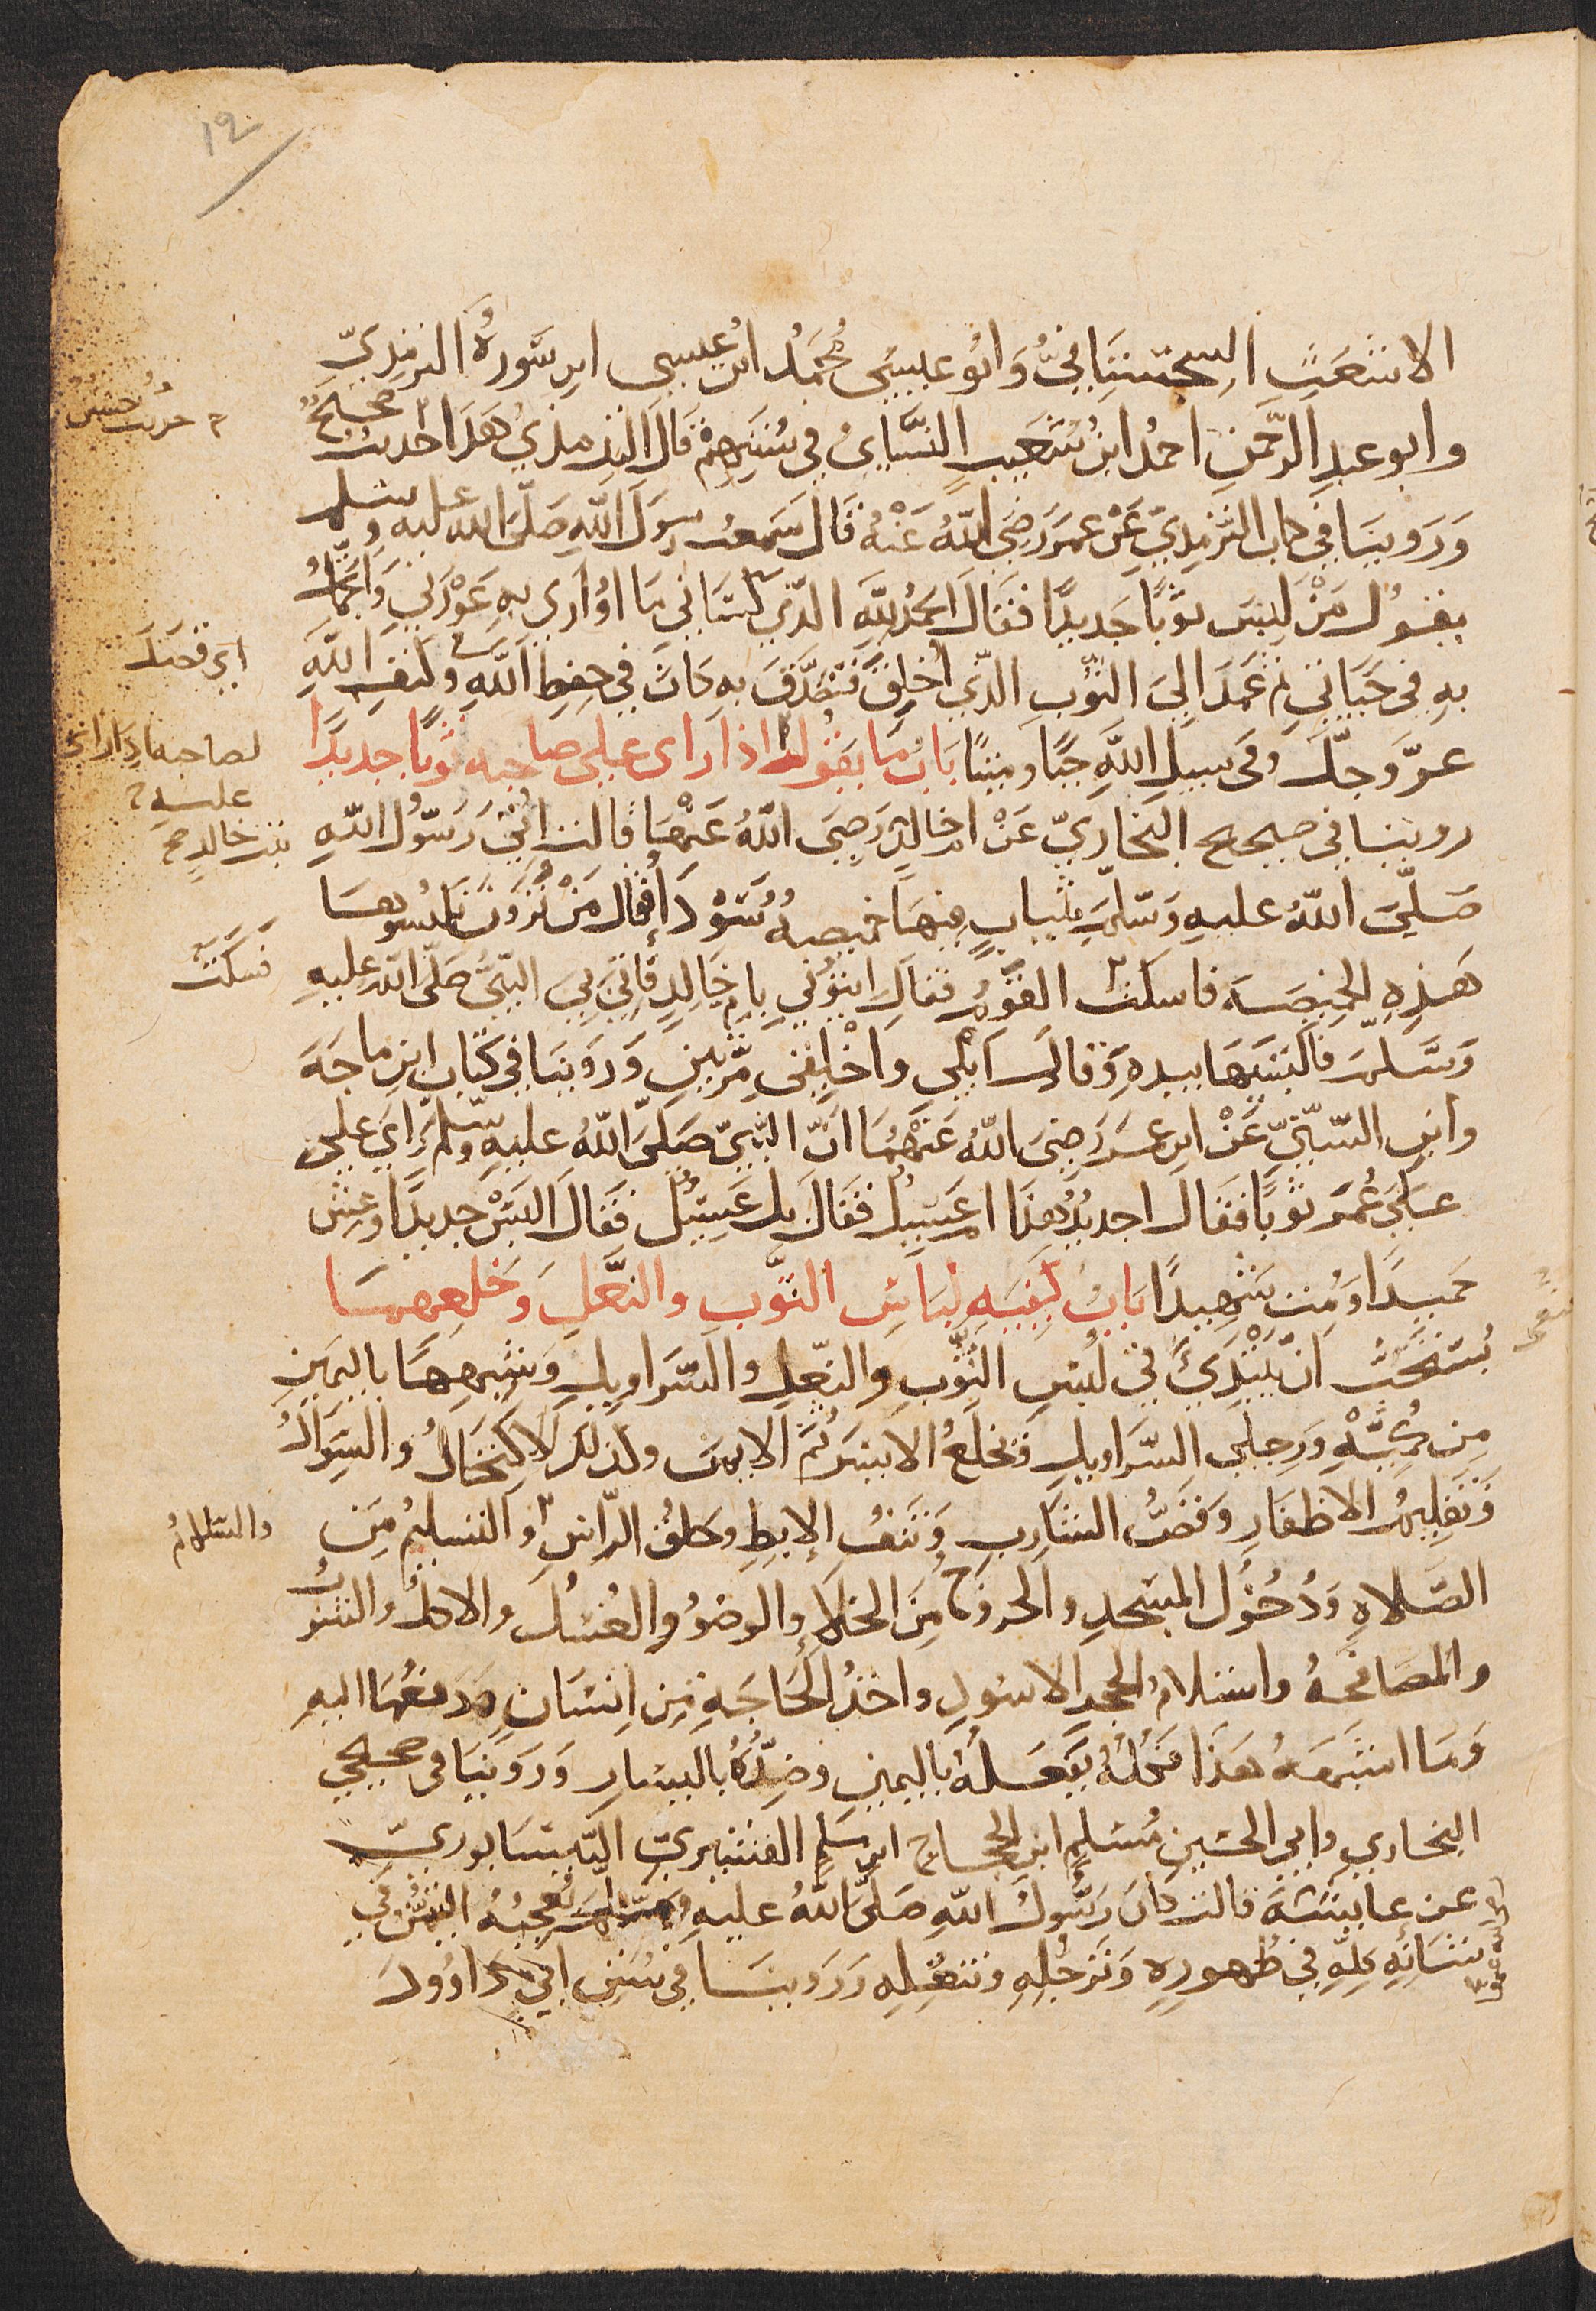 12
الاشعث السجستاني وابو عيسى محمد ابن عيسى ابن سورة الترمذي
وابو عبد الرحمن احمد ابن شعيب النسائي في سننهم قال الترمذي هذا حديث صحيح
حديث حسن
وروينا في كتاب الترمذي عن عمر رضي الله عنه قال سمعت رسول الله صلى الله عليه وسلم
يقول من لبس ثوبا جديدا فقال الحمد لله الذي كساني ما اواري به عورتي واتجمل
به في حياتي ثم عمد الى الثوب الذي اخلق فتصدق به كان في حفظ الله وفي كنف الله
عز وجل وفي سبيل الله حيا وميتا باب ما يقول اذا راى على صاحبه ثوبا جديدا
لصاحبه اذا راى
عليه
روينا في صحيح البخاري عن ام خالد رضي الله عنها قالت اتي رسول الله
بنت خالد صح
صلى الله عليه وسلم بثياب فيها خميصة سوداء فقال من ترون نكسوها
هذه الخميصة فاسكت القوم فقال ايتوني بام خالد فاتي بي النبي صلى الله عليه
فسكت
وسلم فالبسها بيده وقال ابلي واخلقي مرتين وروينا في كتاب ابن ماجه
وابن السني عن ابن عمر رضي الله عنهما ان النبي صلى الله عليه وسلم راى على
على عمر ثوبا فقال اجديد هذا ام غسيل فقال بل غسيل فقال البس جديدا وعش
حميدا ومت شهيدا باب كيفية لباس الثوب والنعل وخلعهما
يستحب ان يبتدئ في لبس الثوب والنعل والسراويل وشبهها باليمين
من كميه ورجلي السراويل ويخلع الايسر ثم الايمن وكذلك الاكتحال والسواك
وتقليم الاظفار وقص الشارب ونتف الابط وحلق الراس والتسليم من
والسلام
الصلاة ودخول المسجد والخروج من الخلاء والوضوء والغسل والاكل والشرب
والمصافحة واستلام الحجر الاسود واخذ الحاجة من انسان ودفعها اليه
وما اشبه هذا فكله يفعله باليمين وضده باليسار وروينا في صحيحي
البخاري وابي الحسين مسلم ابن الحجاج ابن مسلم القشيري النيسابوري
عن عايشة قالت كان رسول الله صلى الله عليه وسلم يعجبه التيمن في
شانه كله في طهوره وترجله وتنعله وروينا في سنن ابي داوود